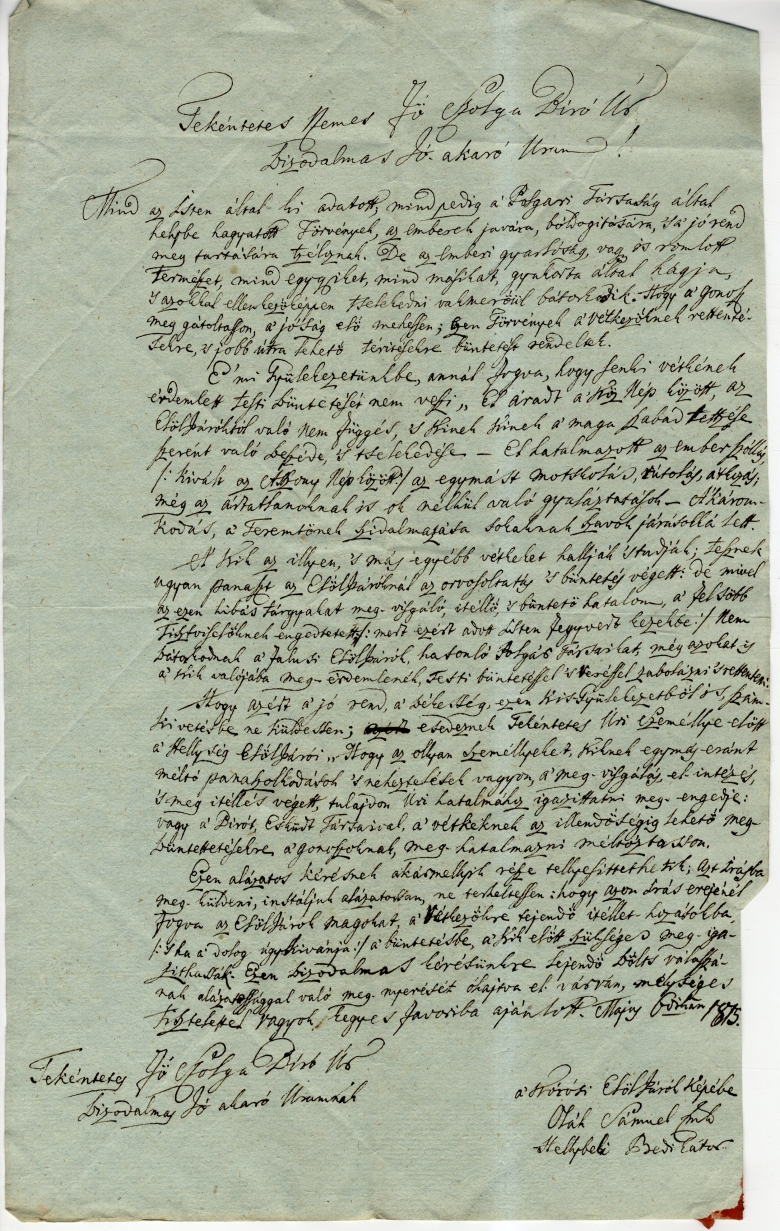 Tekéntetes Nemes Fő Szolga Biró Úr
Bizodalmas Jó akaró Uram!
Mind az Isten által ki adatott, mind pedig a Polgari Társaság által
helybe hagyatott Törvények, az emberek javára, bóldogitására, 's a' jó rend
meg tartására tzéloznak. De az emberi gyarlóság, vagy is romlott
termeszet, mind egygyiket, mind masikat, gyakorta által hágja,
's azokkal ellenkezőképpen tselekedni vakmerőül bátorkodik. Hogy a' gonosz
meg gátoltasson, a' jóság elő mehessen; Ezen Törvények a' vétkezőknek retteté-
sekre, 's jobb útra lehető téritésekre büntetést rendeltek.
E' mi Gyülekezetünkbe, annál fogva, hogy senki vétkének
érdemlett testi büntetését nem veszi, El áradt a' Köz Nép között, az
Elöljáróktól való nem függés, 's kinek kinek a' maga szabad tettzése
szerént való beszéde, 's tselekedése — El hatalmazott az ember szóllás,
/: kivált az Aszszony Nép között :/ az egymást motskolás, rútolás, átkozás;
még az ártatlanoknak is ok nélkül való gyaláztatások — A káromkodás,
a' Teremtőnek szidalmazása sokaknak szavok járásokká lett.
A' kik az illyen, 's más egyébb vétkeket hallják 's tudják; tesznek
ugyan panaszt az Elöljáróknál az orvosoltatás 's büntetés végett: de mivel
az ezen hibás tárgyakat meg-visgáló, itéllő, 's büntető hatalom, a' felsőbb
Tisztviselőknek engedtetett /: mert ezért adott Isten fegyvert kezekbe :/ Nem
bátorkodnak a' falusi Elöljárók, hasonló Polgár Társaikat, még azokat is
a' kik valójába meg-érdemlenék, Testi büntetéssel 's veréssel zabolázni 's rettenteni.
Hogy azért a' jó rend, a' békesség, ezen kis Gyülekezetből is, szám-
kivetésbe ne küldessen; esedeznek Tekéntetes Úri személlye előtt
a' Hellység Elöljárói, Hogy az ollyan személlyeket, kiknek egymás eránt
méltó panaszolkodások 's neheztelések vagyon, a' meg-visgálás, el intézés,
's meg itéllés végett, tulajdon Úri hatalmához igazittatni meg-engedje:
vagy a' Birót, Esküdt Társaival, a' vétkeknek az illendőségig lehető meg-
büntettetésekre a' gonoszoknak, meg-hatalmazni méltóztasson.
Ezen alázatos kérésnek akármellyik része tellyesittethetik; azt Irásba
meg-küldeni, instáljuk alázatosan, ne terheltessen: hogy azon Irás erejénél
fogva az Elöljárók magokat, a' vétkezőkre tejendő itéllet hozásokba,
/: 's ha a' dolog úgy kivánja :/ a' büntetésbe, a' kik előtt szükséges meg-iga-
zithassák. Ezen bizodalmas kérésünkre tejendő bölts válaszszá-
nak alázatossággal való meg-nyerését óhajtva el várván, mélységes
tisztelettel vagyok, kegyes favoriba ajánlott. Majus 6dikán 1815.
Tekéntetes Fő Szolga Biró Úr
Bizodalmas Jó akaró Uramnak
a' Kőrösi Elöljárók képébe
Oláh Sámuel mk
Hellybeli Predikátor.